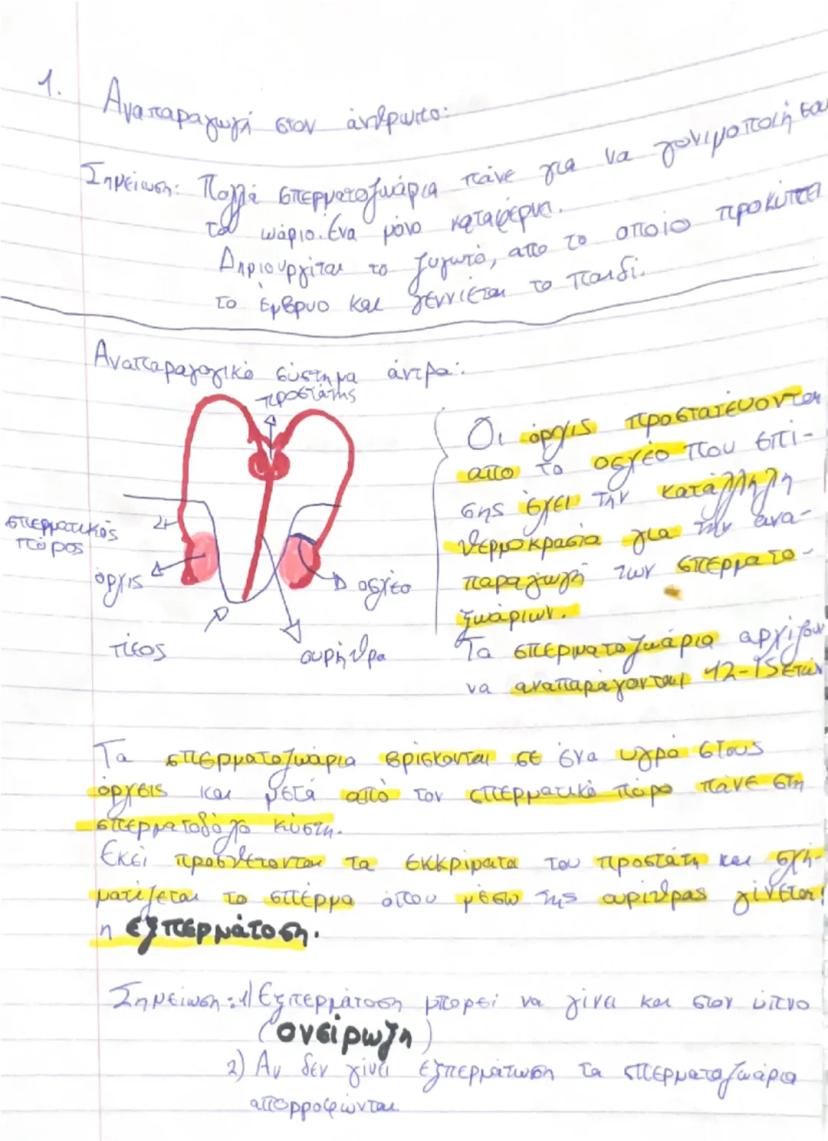 1. Αναπαραγωγή στον άνθρωπο:
Σημείωση: Πολλά σπερματοζωάρια πάνε για να γονιμοποιήσου
το ωάριο. Ένα μόνο καταφέρνει.
Δημιουργίται το ζυγωτό, απο το οποίο προκύπτει
το έμβρυο και γεννιέται το παιδί.
Αναπαραγογικό σύστημα άντρα:
προστάτης
σπερματικός
πόρος
όρχις
οσχέο
πέος
ουρήθρα
Οι όρχις προστατέυονται
απο το οσχέο που επί-
σης έχει την κατάλληλη
θερμοκρασία για την ανα-
παραγωγή των σπερματο-
ζωάριων.
Τα σπερματοζωάρια αρχίζουν
να αναπαράγονται 12-15 ετών
Τα σπερματοζωάρια βρίσκονται σε ένα υγρό στους
όρχεις και μετά από τον σπερματικό πόρο πάνε στη
σπερματοδόχο κύστη.
Εκεί προσθέτονται τα εκκρίματα του προστάτη και σχη-
ματίζεται το σπέρμα όπου μέσω της ουρίθρας γίνεται
η εξπερμάτοση.
Σημείωση: 1) Εξπερμάτοση μπορεί να γίνει και στον ύπνο
(ονείρωξη)
2) Αν δεν γίνει εξπερμάτωση τα σπερματοζωάρια
απορροφώνται